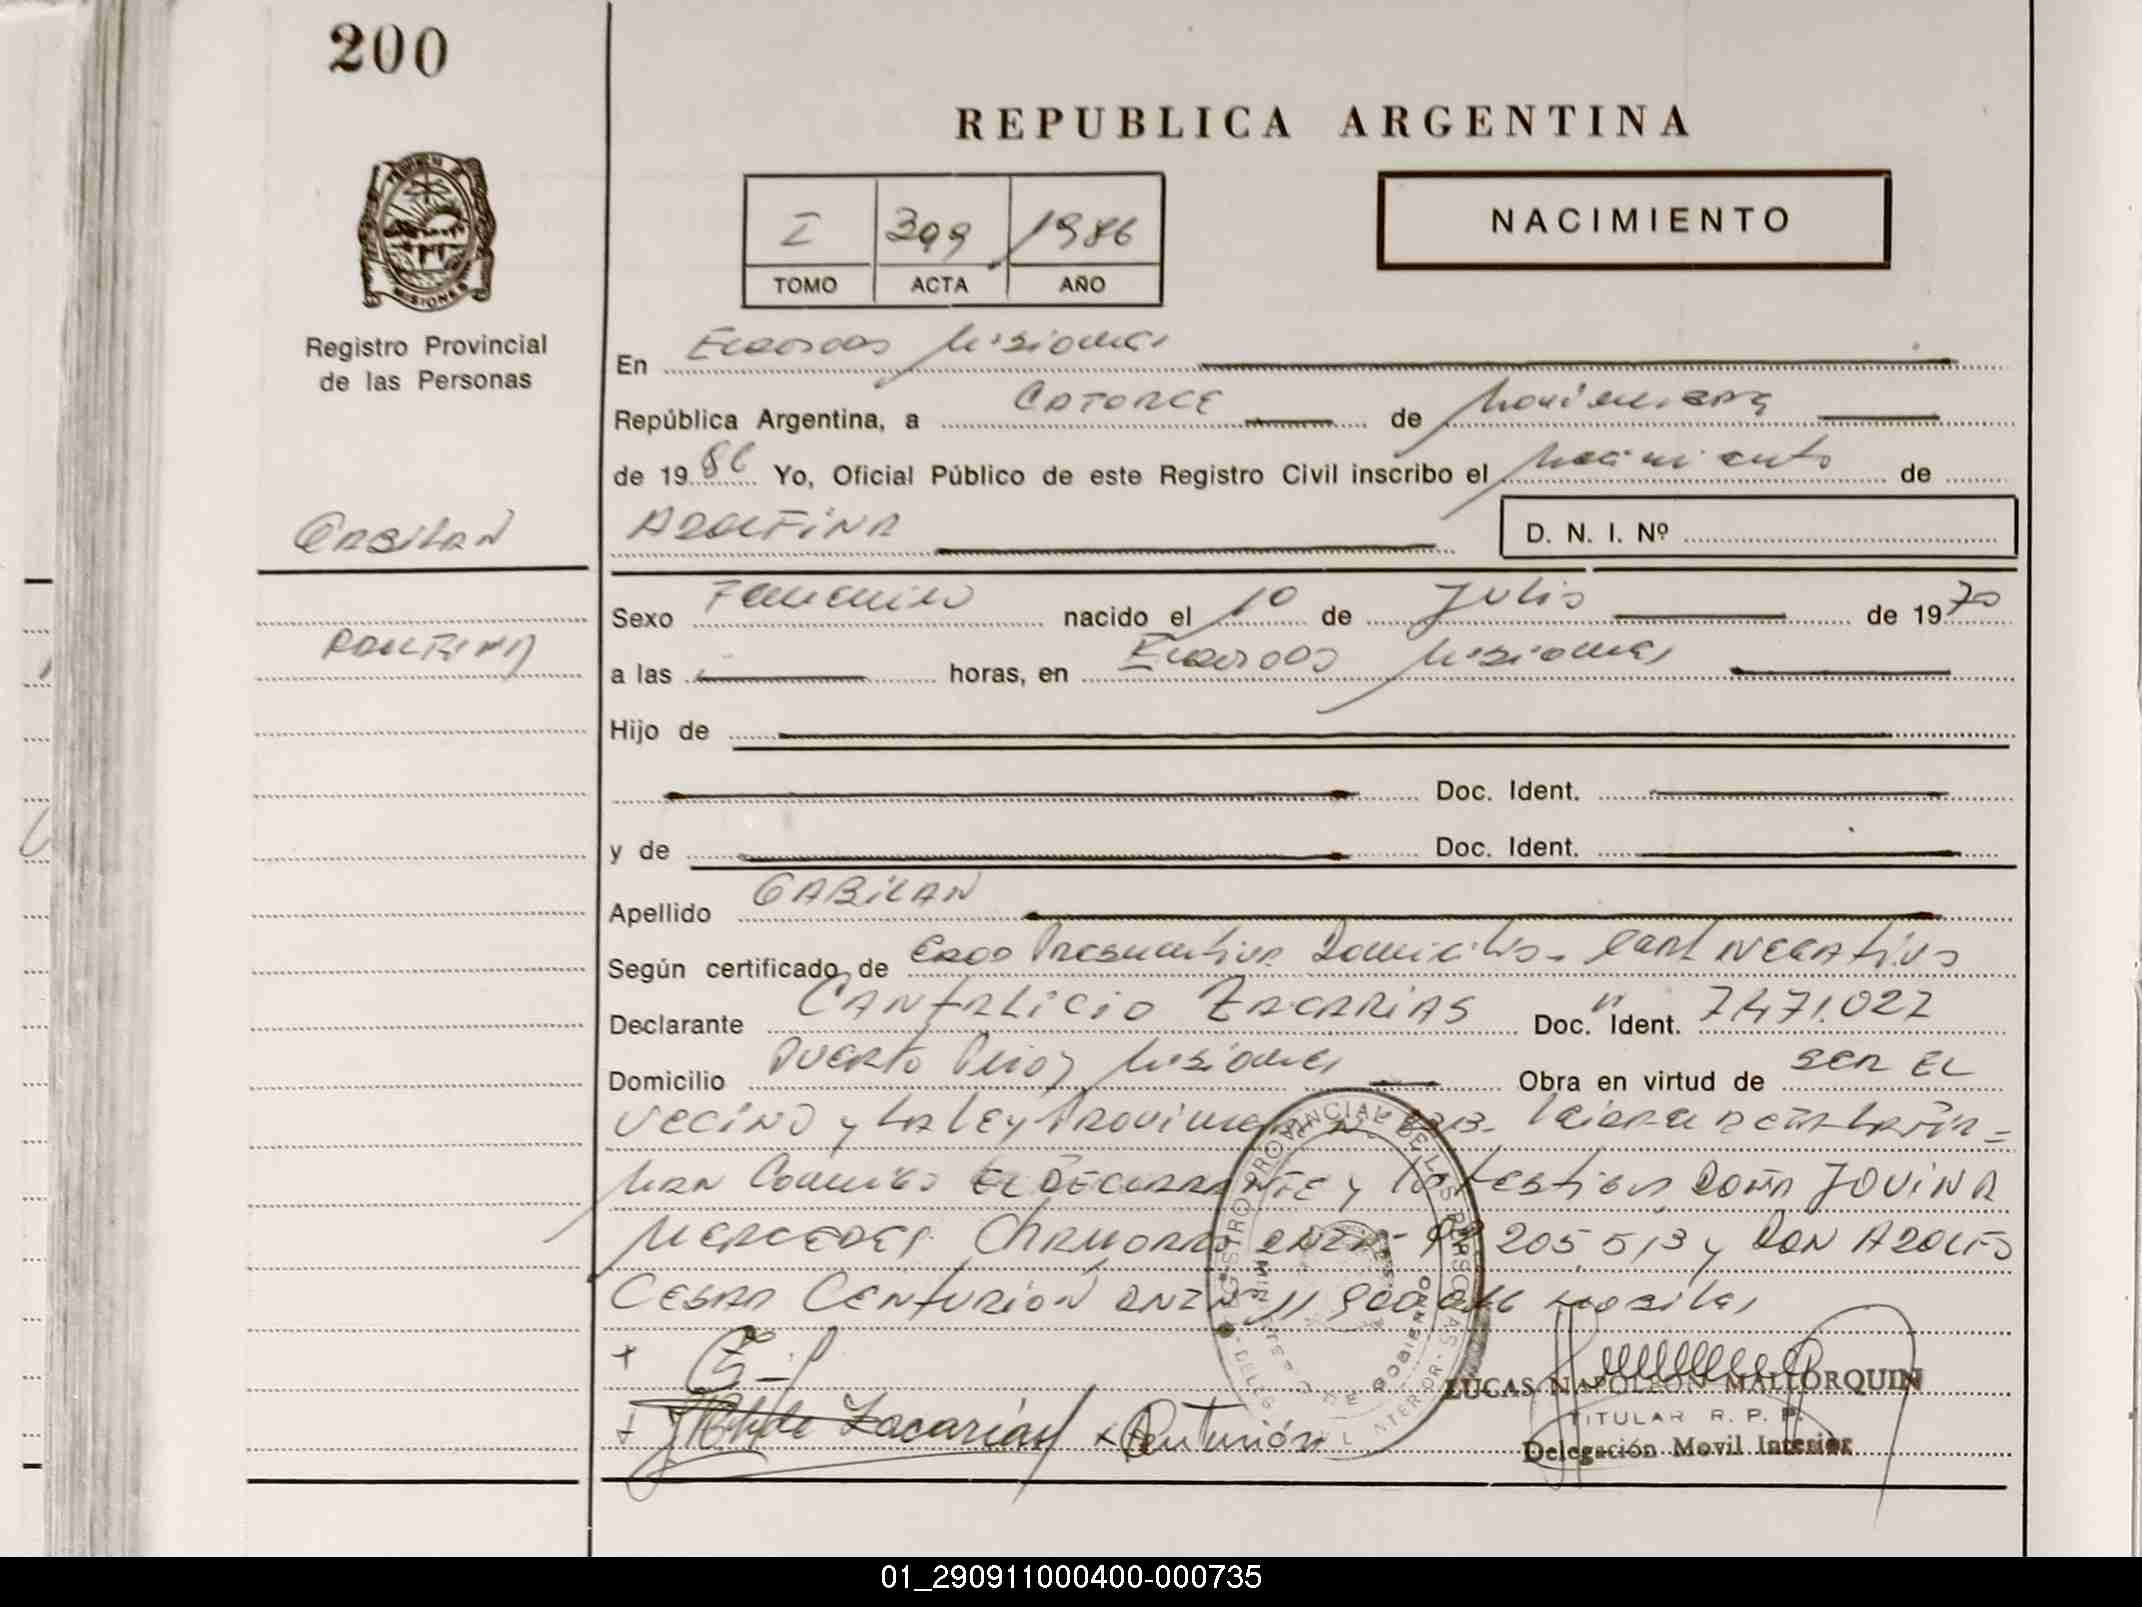 200
REPUBLICA ARGENTINA
NACIMIENTO
I 399 1986
TOMO ACTA AÑO
MISIONES
Registro Provincial
de las Personas
En Misiones
República Argentina, a CATORCE de Noviembre
de 1986 Yo, Oficial Público de este Registro Civil inscribo el Nacimiento de
GABILAN
ADOLFINA
D. N. I. Nº
ADOLFINA
Sexo Femenino nacido el 10 de Julio de 1970
a las horas, en Misiones
Hijo de
Doc. Ident.
y de Doc. Ident.
Apellido GABILAN
Según certificado de Edad Presuntiva Domicilio. Cert NEGATIVO
Declarante CANTALICIO ZACARIAS Doc. Ident. 7.471.027
Domicilio PUERTO Misiones Obra en virtud de SER EL
VECINO y LA LEY Provincial
Conmigo EL DECLARANTE y los testigos DOÑA JOVINA
MERCEDES CHAMORRO 205 513 y DON ADOLFO
CESAR CENTURION DNI Nº 11 900
+
+ Zacarías + Centurión
REGISTRO PROVINCIAL DE LAS PERSONAS
MINISTERIO DE GOBIERNO
LUCAS NAPOLEON MALLORQUIN
TITULAR R. P. P.
Delegación Movil Interior
01_290911000400-000735